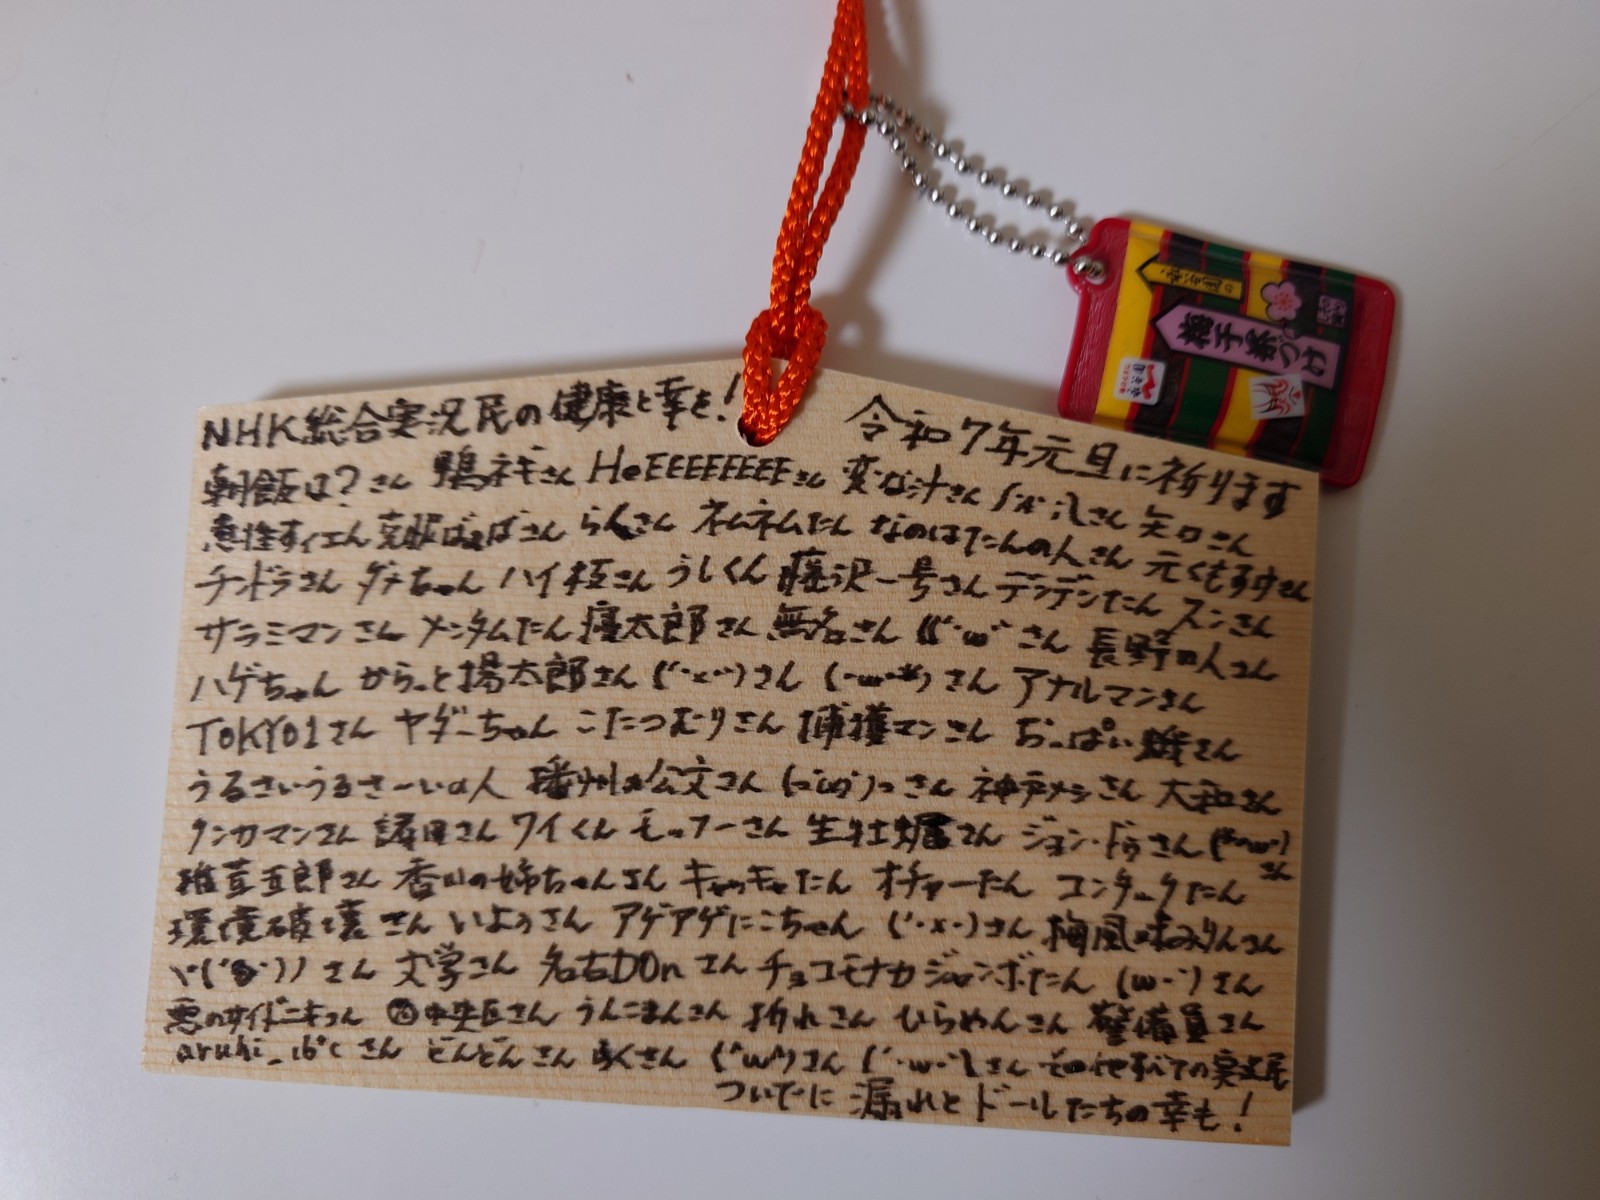 NHK総合実況民の健康と幸を!
令和7年元旦に祈ります
朝飯は?さん 鴨ネギさん HeEEEEEEEEさん 変な汁さん さん 矢口さん
悪性すィエん 克服ばぁばさん らんさん ネムネムたん なのはたんの人さん 元くもすけさん
チンドラさん ダメちゃん ハイ枉さん うしくん 藤沢一号さん デンデンたん スンさん
サラミマンさん メンタムたん 寝太郎さん 無名さん ((´･ω･`さん 長野の人さん
ハゲちゃん からっと揚太郎さん (´･x･`)さん (･ω･*)さん アナルマンさん
TOKYO1さん ヤダーちゃん こたつむりさん 捕獲マンさん おっぱい さん
うるさいうるさーいの人 播州の公文さん さん 神戸メシさん 大和さん
タンカマンさん 諸田さん ワイくん モッフーさん 生牡蠣さん ジョン・ドゥさん (*^ω^)さん
椎茸五郎さん 香川の姉ちゃんさん キャッキャたん オチャーたん コンタックたん
環境破壊さん いようさん アゲアゲにこちゃん (´･x･`)さん 梅風味みりんさん
さん 文学さん 名古DOnさん チョコモナカジャンボたん (ω･`)さん
悪のサイドニキさん 中央区さん うんこまんさん 折れさん ひらめんさん 警備員さん
aruhi_16℃さん どんどんさん らくさん (^ω^)さん (´･ω･`)さん その他すべての実況民
ついでに漏れとドールたちの幸も!
永谷園の
梅干茶づけ
永谷園